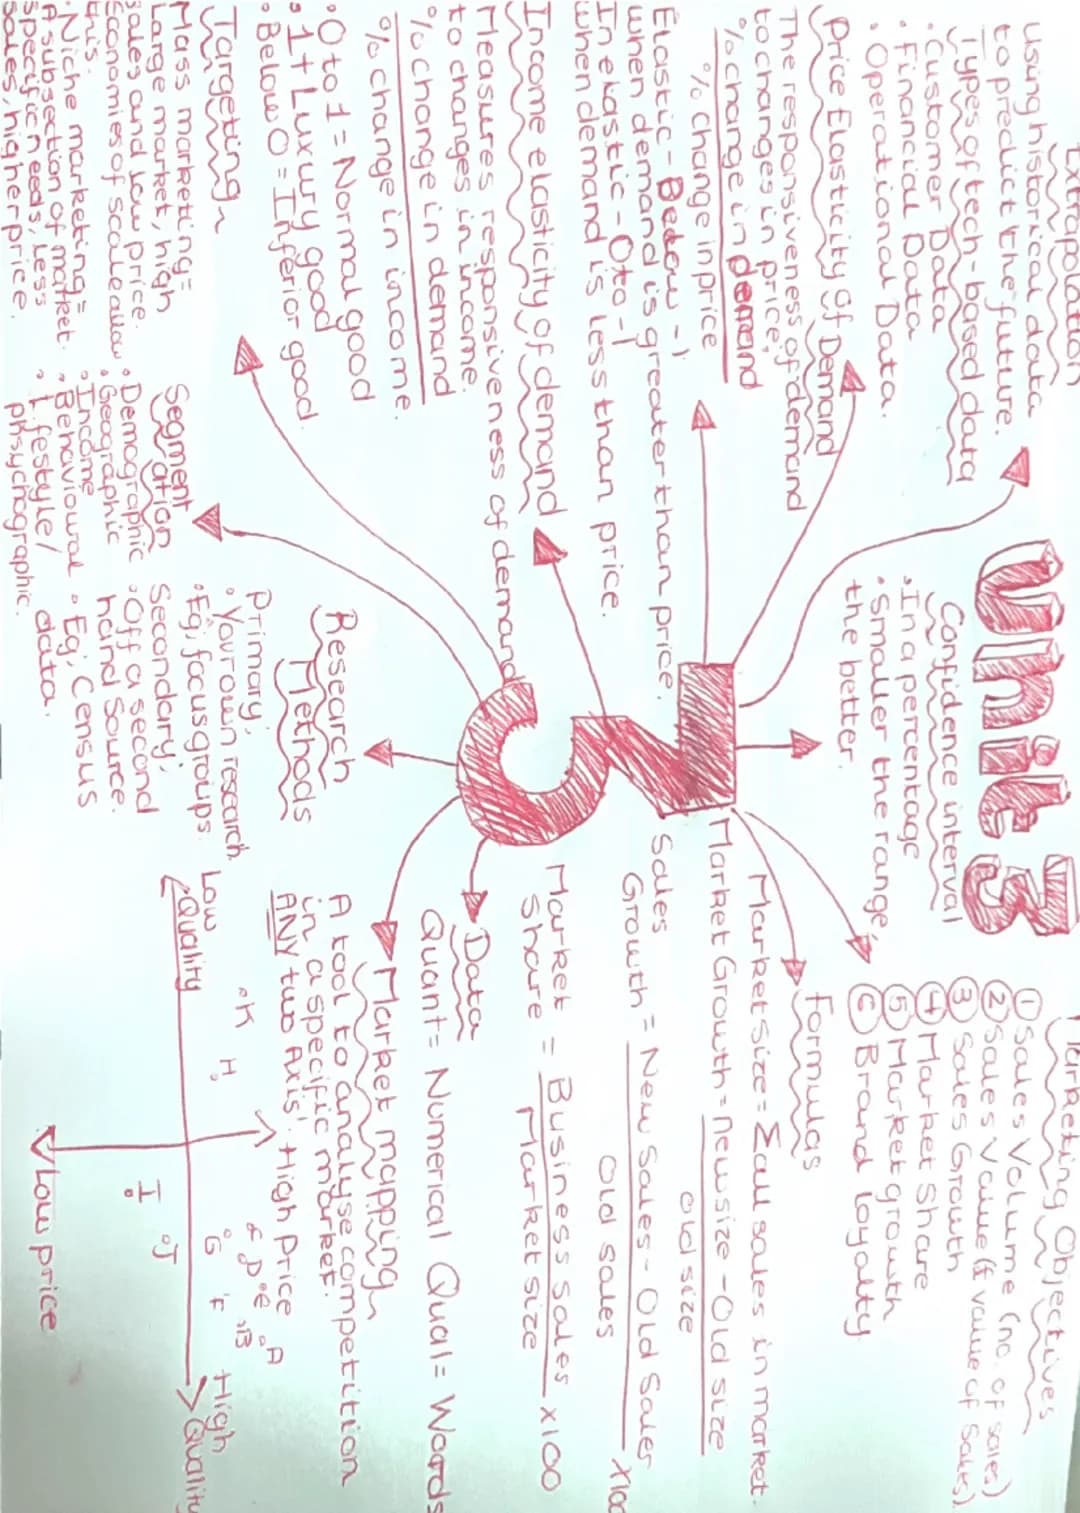 Unit 3
Extrapolation
Using historical data
to predict the future.
Types of tech-based data
• Customer Data
• Financial Data
• Operational Data.
Price Elasticity of Demand
The responsiveness of demand
to changes in price,
% change in demand
% change in price
Elastic - Below -1
when demand is greater than price.
Inelastic - 0 to -1
when demand is less than price.
Income elasticity of demand
Measures responsiveness of demand
to changes in income.
% change in demand
% change in income.
• 0 to 1 = Normal good
• 1+ Luxury good
• Below 0 = Inferior good.
Targeting
Mass marketing=
Large market, high
sales and low price.
Economies of scale allow
this.
• Niche marketing=
A subsection of market.
specific needs, less
sales, higher price.
Segment
ation
• Demographic
• Geographic
• Income
• Behavioural
• Lifestyle/
phsychographic.
Confidence interval
• In a percentage
• Smaller the range,
the better.
Research
Methods
Primary,
• Your own research
• Eg, focus groups.
Secondary,
• Off a second
hand source.
• Eg, Census
data.
Marketing Objectives
① Sales Volume (no. of sales)
② Sales Value (£ value of sales)
③ Sales Growth
④ Market Share
⑤ Market growth
⑥ Brand loyalty
Formulas
Market size = Σ all sales in market.
Market Growth = New size - Old size
old size
Sales
Growth = New Sales - Old Sales x100
Old sales
Market
Share = Business sales x100
Market size
Data
Quant = Numerical Qual = Words
Market mapping
A tool to analyse competition
in a specific market.
ANY two Axis'.
High Price
Low
Quality
High
Quality
Low price
K
H
I
J
G
D
E
F
B
A